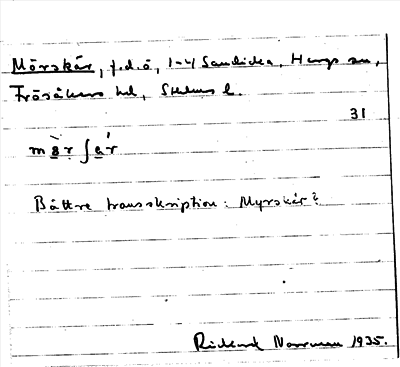 Mörskär, f.d.ö, 1-4 Sandika, Hargs sn,
Frösåkers hd, Sthlms l.
31
mö̀rʃá̱r
Bättre transskription: Myrskär?
Rickard Norrman 1935.